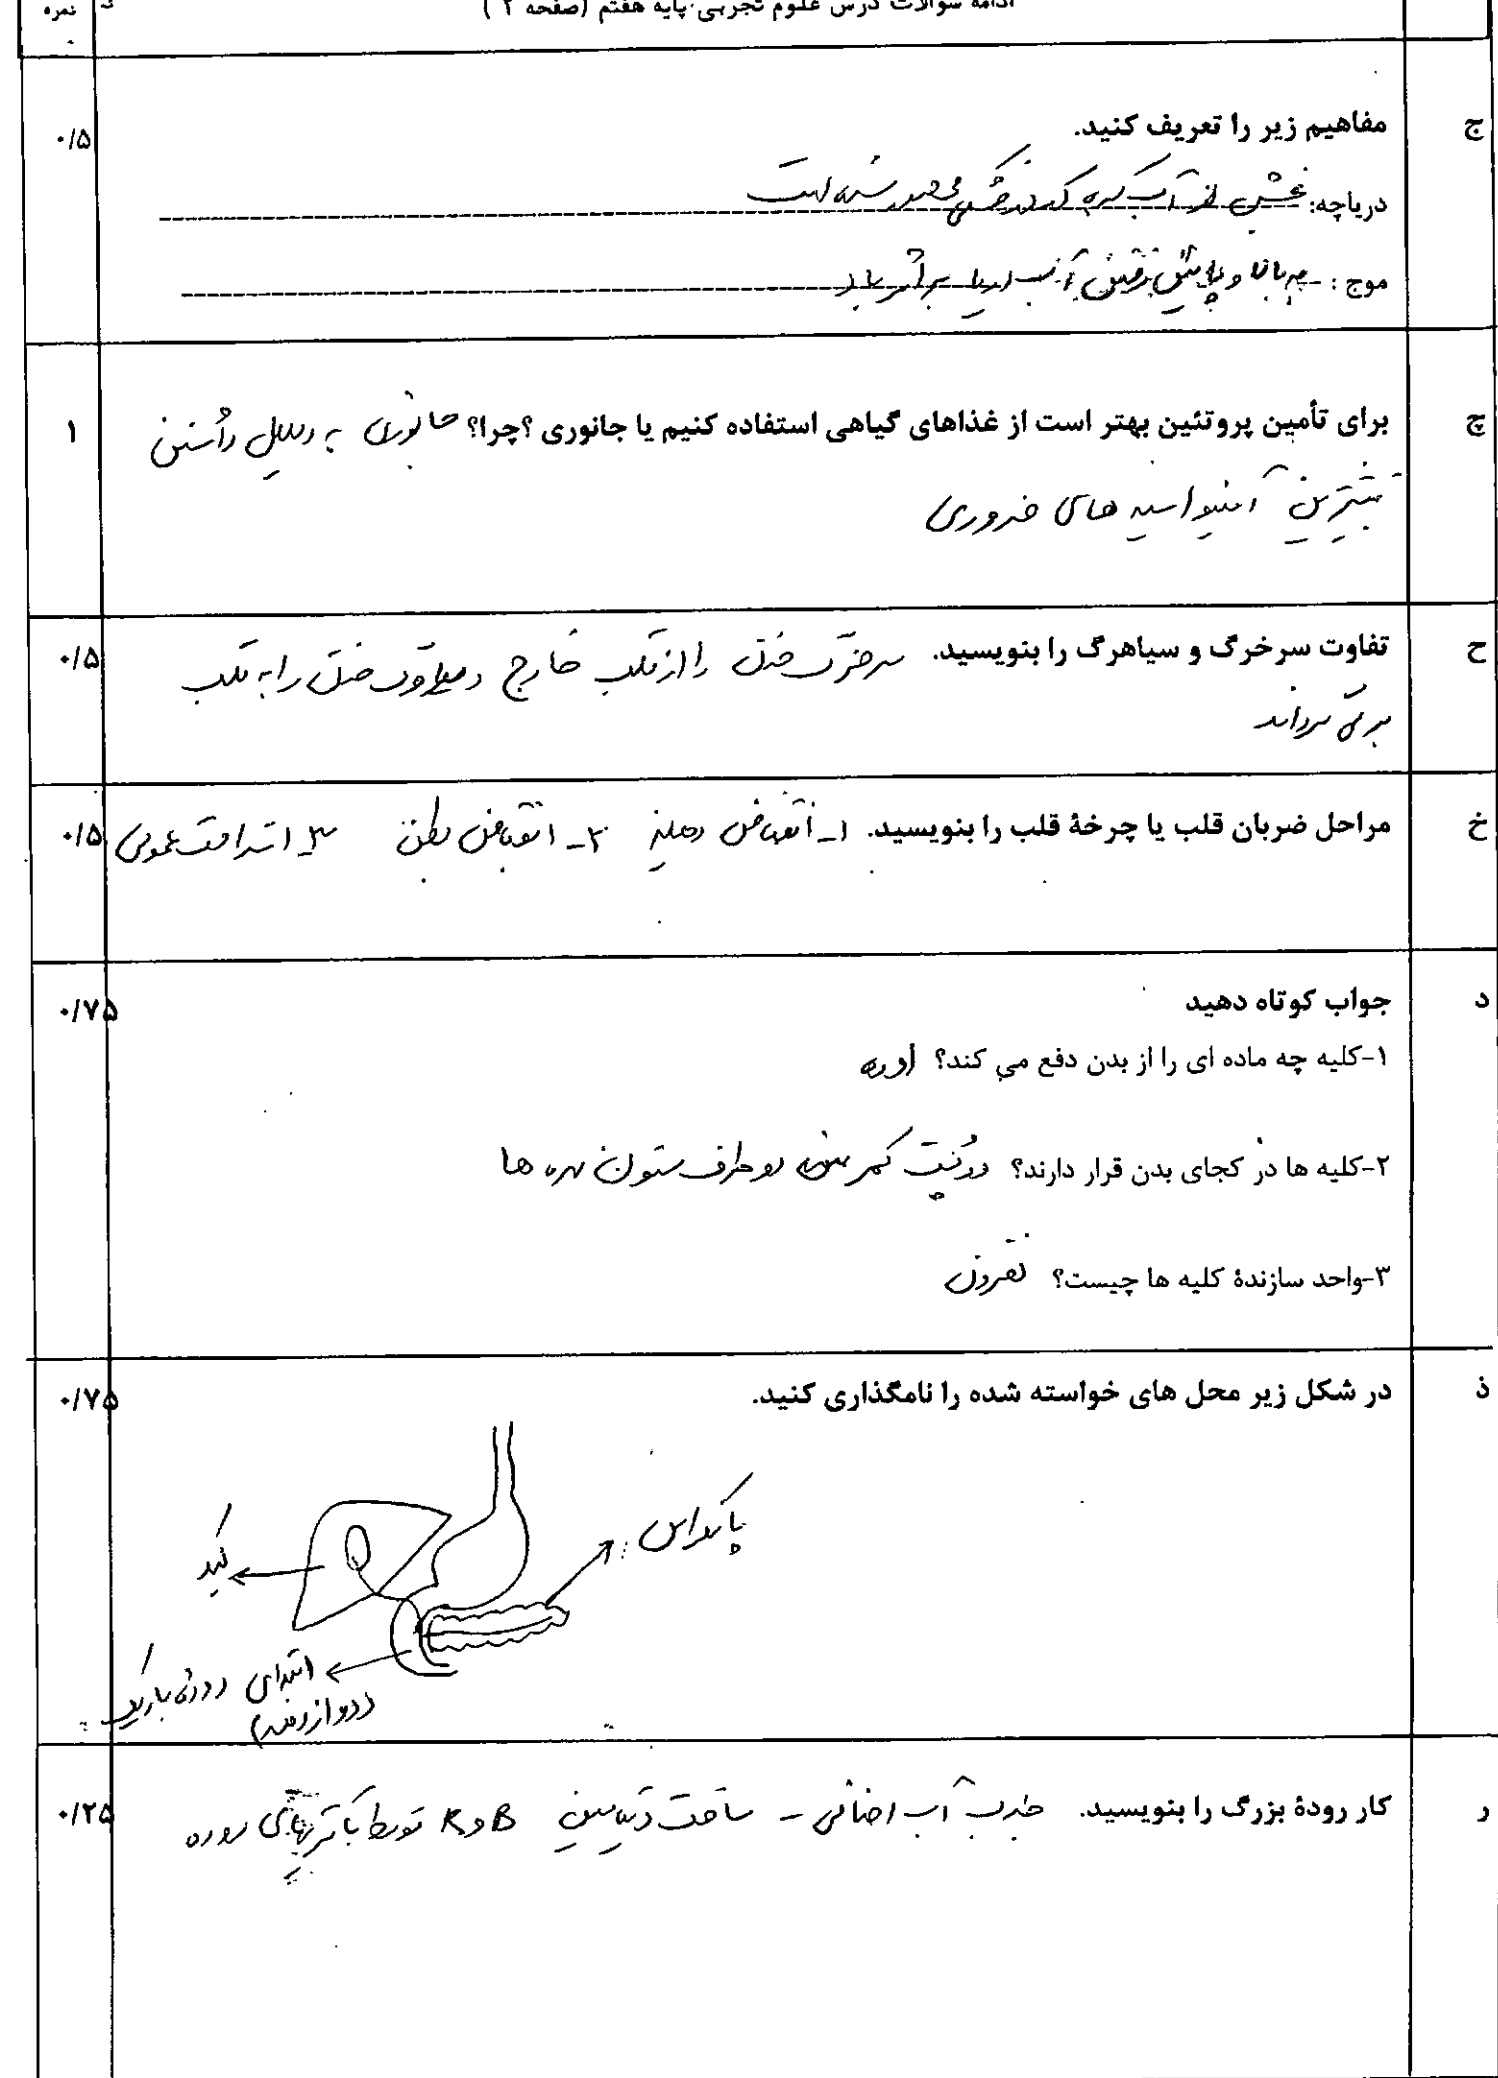 نمره
ادامه سوالات درس علوم تجربی پایه هفتم (صفحه ۲ )
ج
مفاهیم زیر را تعریف کنید.
۰/۵
دریاچه: بخشی از آب کره که در خشکی محصور شده است
موج : به بالا و پایین رفتن آب دریا بر اثر باد
چ
برای تأمین پروتئین بهتر است از غذاهای گیاهی استفاده کنیم یا جانوری ؟چرا؟ جانوری به دلیل داشتن
۱
بیشترین آمینواسید های ضروری
ح
تفاوت سرخرگ و سیاهرگ را بنویسید. سرخرگ خون را از قلب خارج و سیاهرگ خون را به قلب
۰/۵
بر می گرداند
خ
مراحل ضربان قلب یا چرخهٔ قلب را بنویسید. ۱- انقباض دهلیز ۲- انقباض بطن ۳- استراحت عمومی
۰/۵
د
جواب کوتاه دهید
۰/۷۵
۱-کلیه چه ماده ای را از بدن دفع می کند؟ اوره
۲-کلیه ها در کجای بدن قرار دارند؟ در پشت کمر دو طرف ستون مهره ها
۳-واحد سازندهٔ کلیه ها چیست؟ نفرون
ذ
در شکل زیر محل های خواسته شده را نامگذاری کنید.
۰/۷۵
پانکراس
کبد
ابتدای روده باریک
(دوازدهه)
ر
کار رودهٔ بزرگ را بنویسید. جذب آب اضافی - ساخت ویتامین B و K توسط باکتریهای روده
۰/۲۵